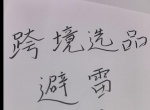 跨境选品
避雷